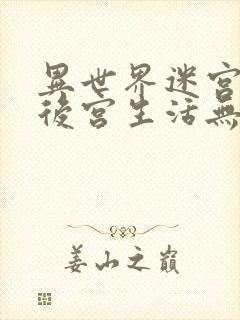 異世界迷宮
後宮生活無
姜山之巔